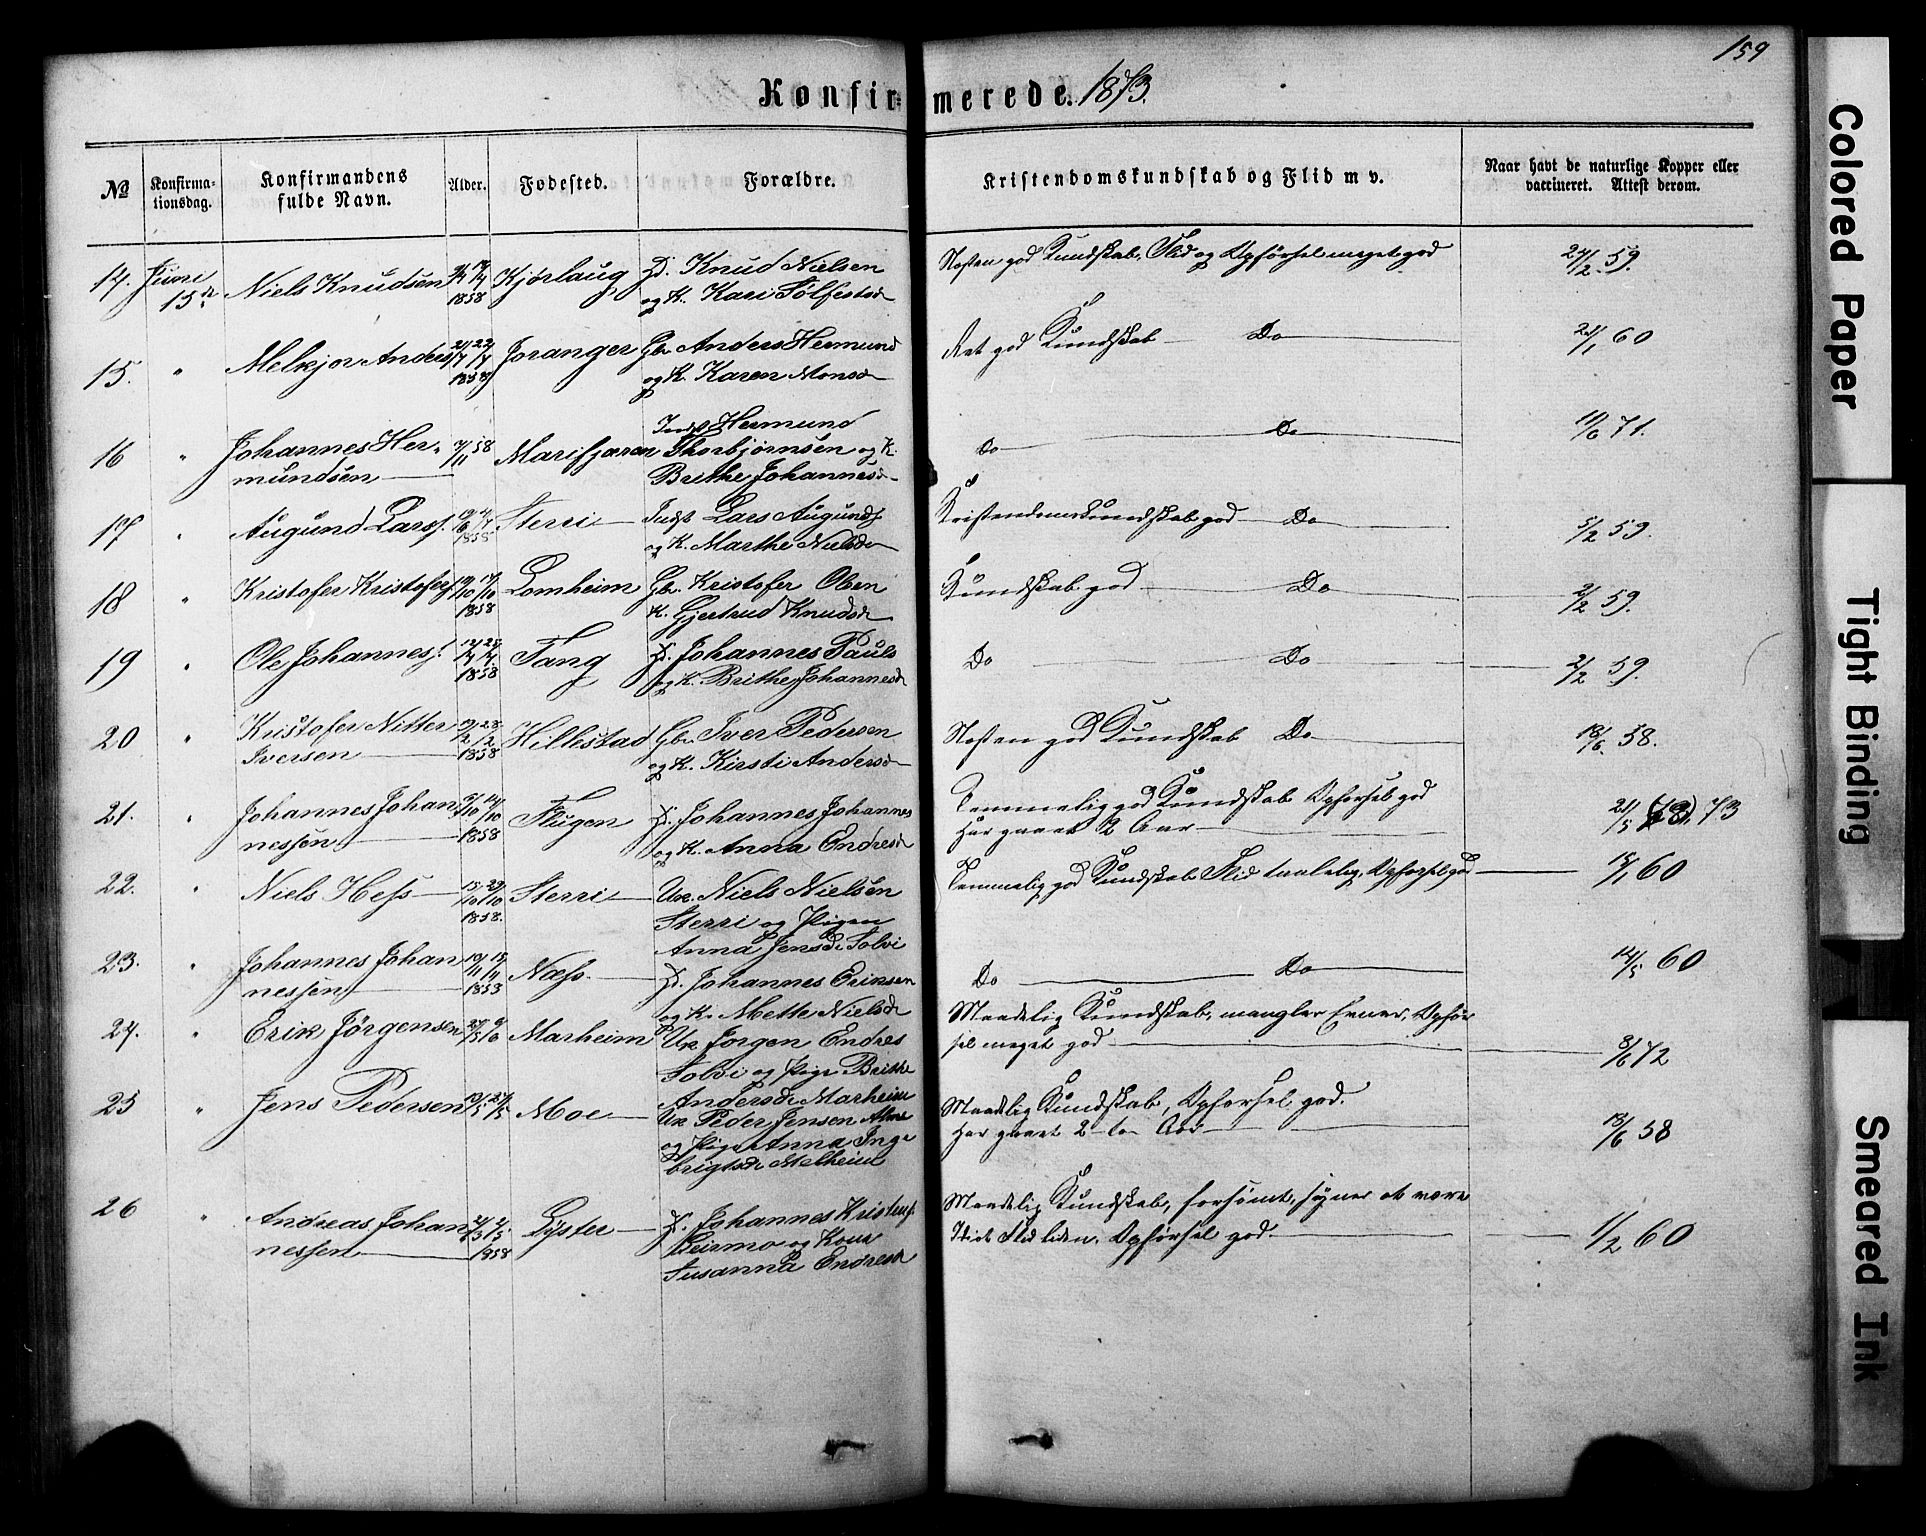 159
Konfirmerede. 1873.
№
Konfirma-
tionsdag.
Konfirmandens
fulde Navn.
Alder.
Fødested.
Forældre.
Kristendomskundskab og Flid m v.
Naar havt de naturlige Kopper eller
vaccineret. Attest derom.
14. Juni 15de Niels Knudsen 1858 Kjørlaug Knud Nielsen
og K. Kari Tolfestsd
Næsten god Kundskab, Flid og Opførsel meget god 24/2 59.
15. " Melkjor Anders 21/7 22/7 1858 Joranger Gbr Anders Hermund
og K. Karen Monsd
Ret god Kundskab Do 2/1 60
16 " Johannes Her-
mundsen 58 Marifjæren Indst Hermund
Thorbjørnsen og K.
Brithe Johannesd
Do Do 11/6 71.
17 " Augund Larss. 1858 Sterri Indst Lars Augunds
og K. Marthe Nielsd
Kristendomskundskab god Do 5/2 59.
18 " Kristofer Kristofers 1858 Lomheim Gbr. Kristofer Olsen
K. Gjertrud Knudsd
Kundskab god Do 2/2 59.
19 " Ole Johanness. 1858 Fang Johannes Pauls
og K. Brithe Johannesd
Do Do 2/2 59.
20 " Kristofer Nitter
Iversen 1858 Hillestad Gbr Iver Pedersen
og K. Kirsti Andersd
Næsten god Kundskab Do 18/6 58.
21. " Johannes Johan
nessen 1858 Flugen Johannes Johannes
og K. Anna Endresd
Temmelig god Kundskab Opførsel god
Har gaaet 2 Aar 21/5 73
22. " Niels Hess 15/10 29/10 1858. Sterri Uæ. Niels Nielsen
Sterri og Pigen
Anna Jensd. Solvi
Temmelig god Kundskab Flid taalelig, Opførsel god 15/1 60
23. " Johannes Johan
nessen Næss. Johannes Eriksen
og K. Mette Nielsd
Do Do 14/5 60
24. " Erik Jørgensen Marheim Uæ Jørgen Endres
Solvi og Pige Brithe
Andersd. Marheim
Maadelig Kundskab, mangler Evner, Opfør
sel meget god 8/6 72
25 " Jens Pedersen Moe Uæ Peder Jensen
og Pige Anna Inge
brigtsd. Melheim
Maadelig Kundskab, Opførsel god.
Har gaaet 2 Aar 18/6 58
26 " Andreas Johan
nessen 1858 Lyster Johannes Kristens.
Beirmo og Kone
Susanna Endresd
Maadelig Kundskab, forsømt, synes at være
Flid liden. Opførsel god. 1/2 60
Colored Paper
Tight Binding
Smeared Ink